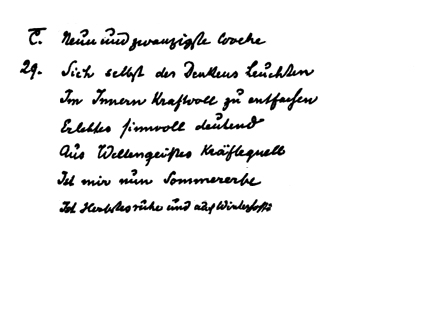 C. Neunundzwanzigste Woche
29. Sich selbst des Denkens Leuchten
Im Innern kraftvoll zu entfachen
Erlebtes sinnvoll deutend
Aus Weltengeistes Kräftequell
Ist mir nun Sommererbe
Ist Herbstesruhe und auch Winterhoff